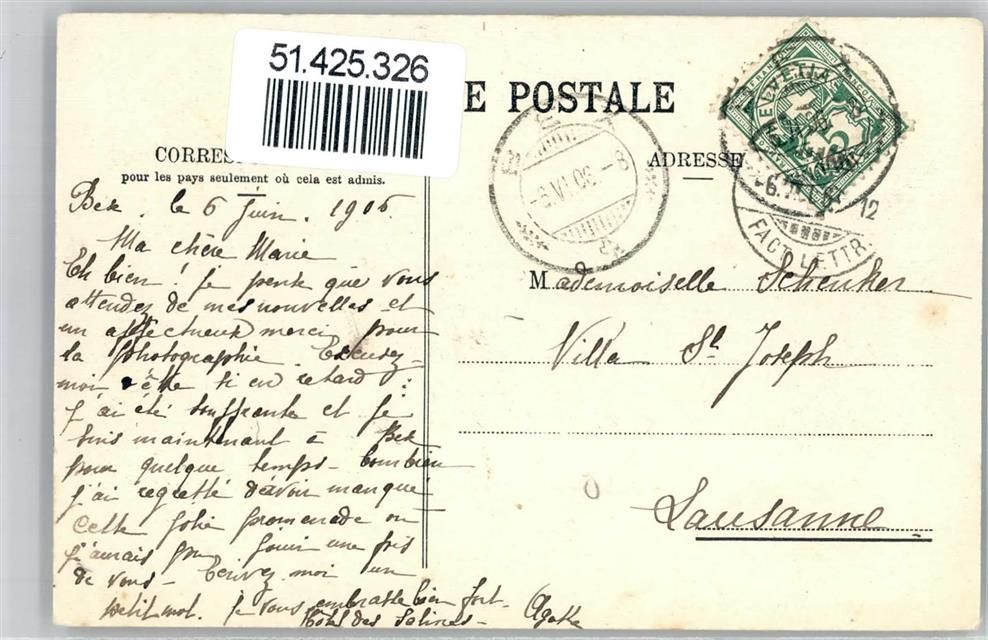 51.425.326
E POSTALE
CORRES
pour les pays seulement où cela est admis.
ADRESSE
HELVETIA
5
-6.VI.06-8
-6. VI. 12
FACT. LETTR.
Bex, le 6 Juin. 1906.
Ma chère Marie
Eh bien! je pense que vous
attendez de mes nouvelles et
un affectueux merci pour
la photographie Excusez-
moi d'être si en retard:
j'ai été souffrante et je
suis maintenant à Bex
pour quelque temps- Combien
j'ai regretté d'avoir manqué
cette jolie promenade où
j'aurais pu jouir une fois
de vous- Ecrivez moi un
petit mot. je vous embrasse bien fort- Agathe
Hôtel des Salines-
Mademoiselle Schenker
Villa St Joseph
Lausanne